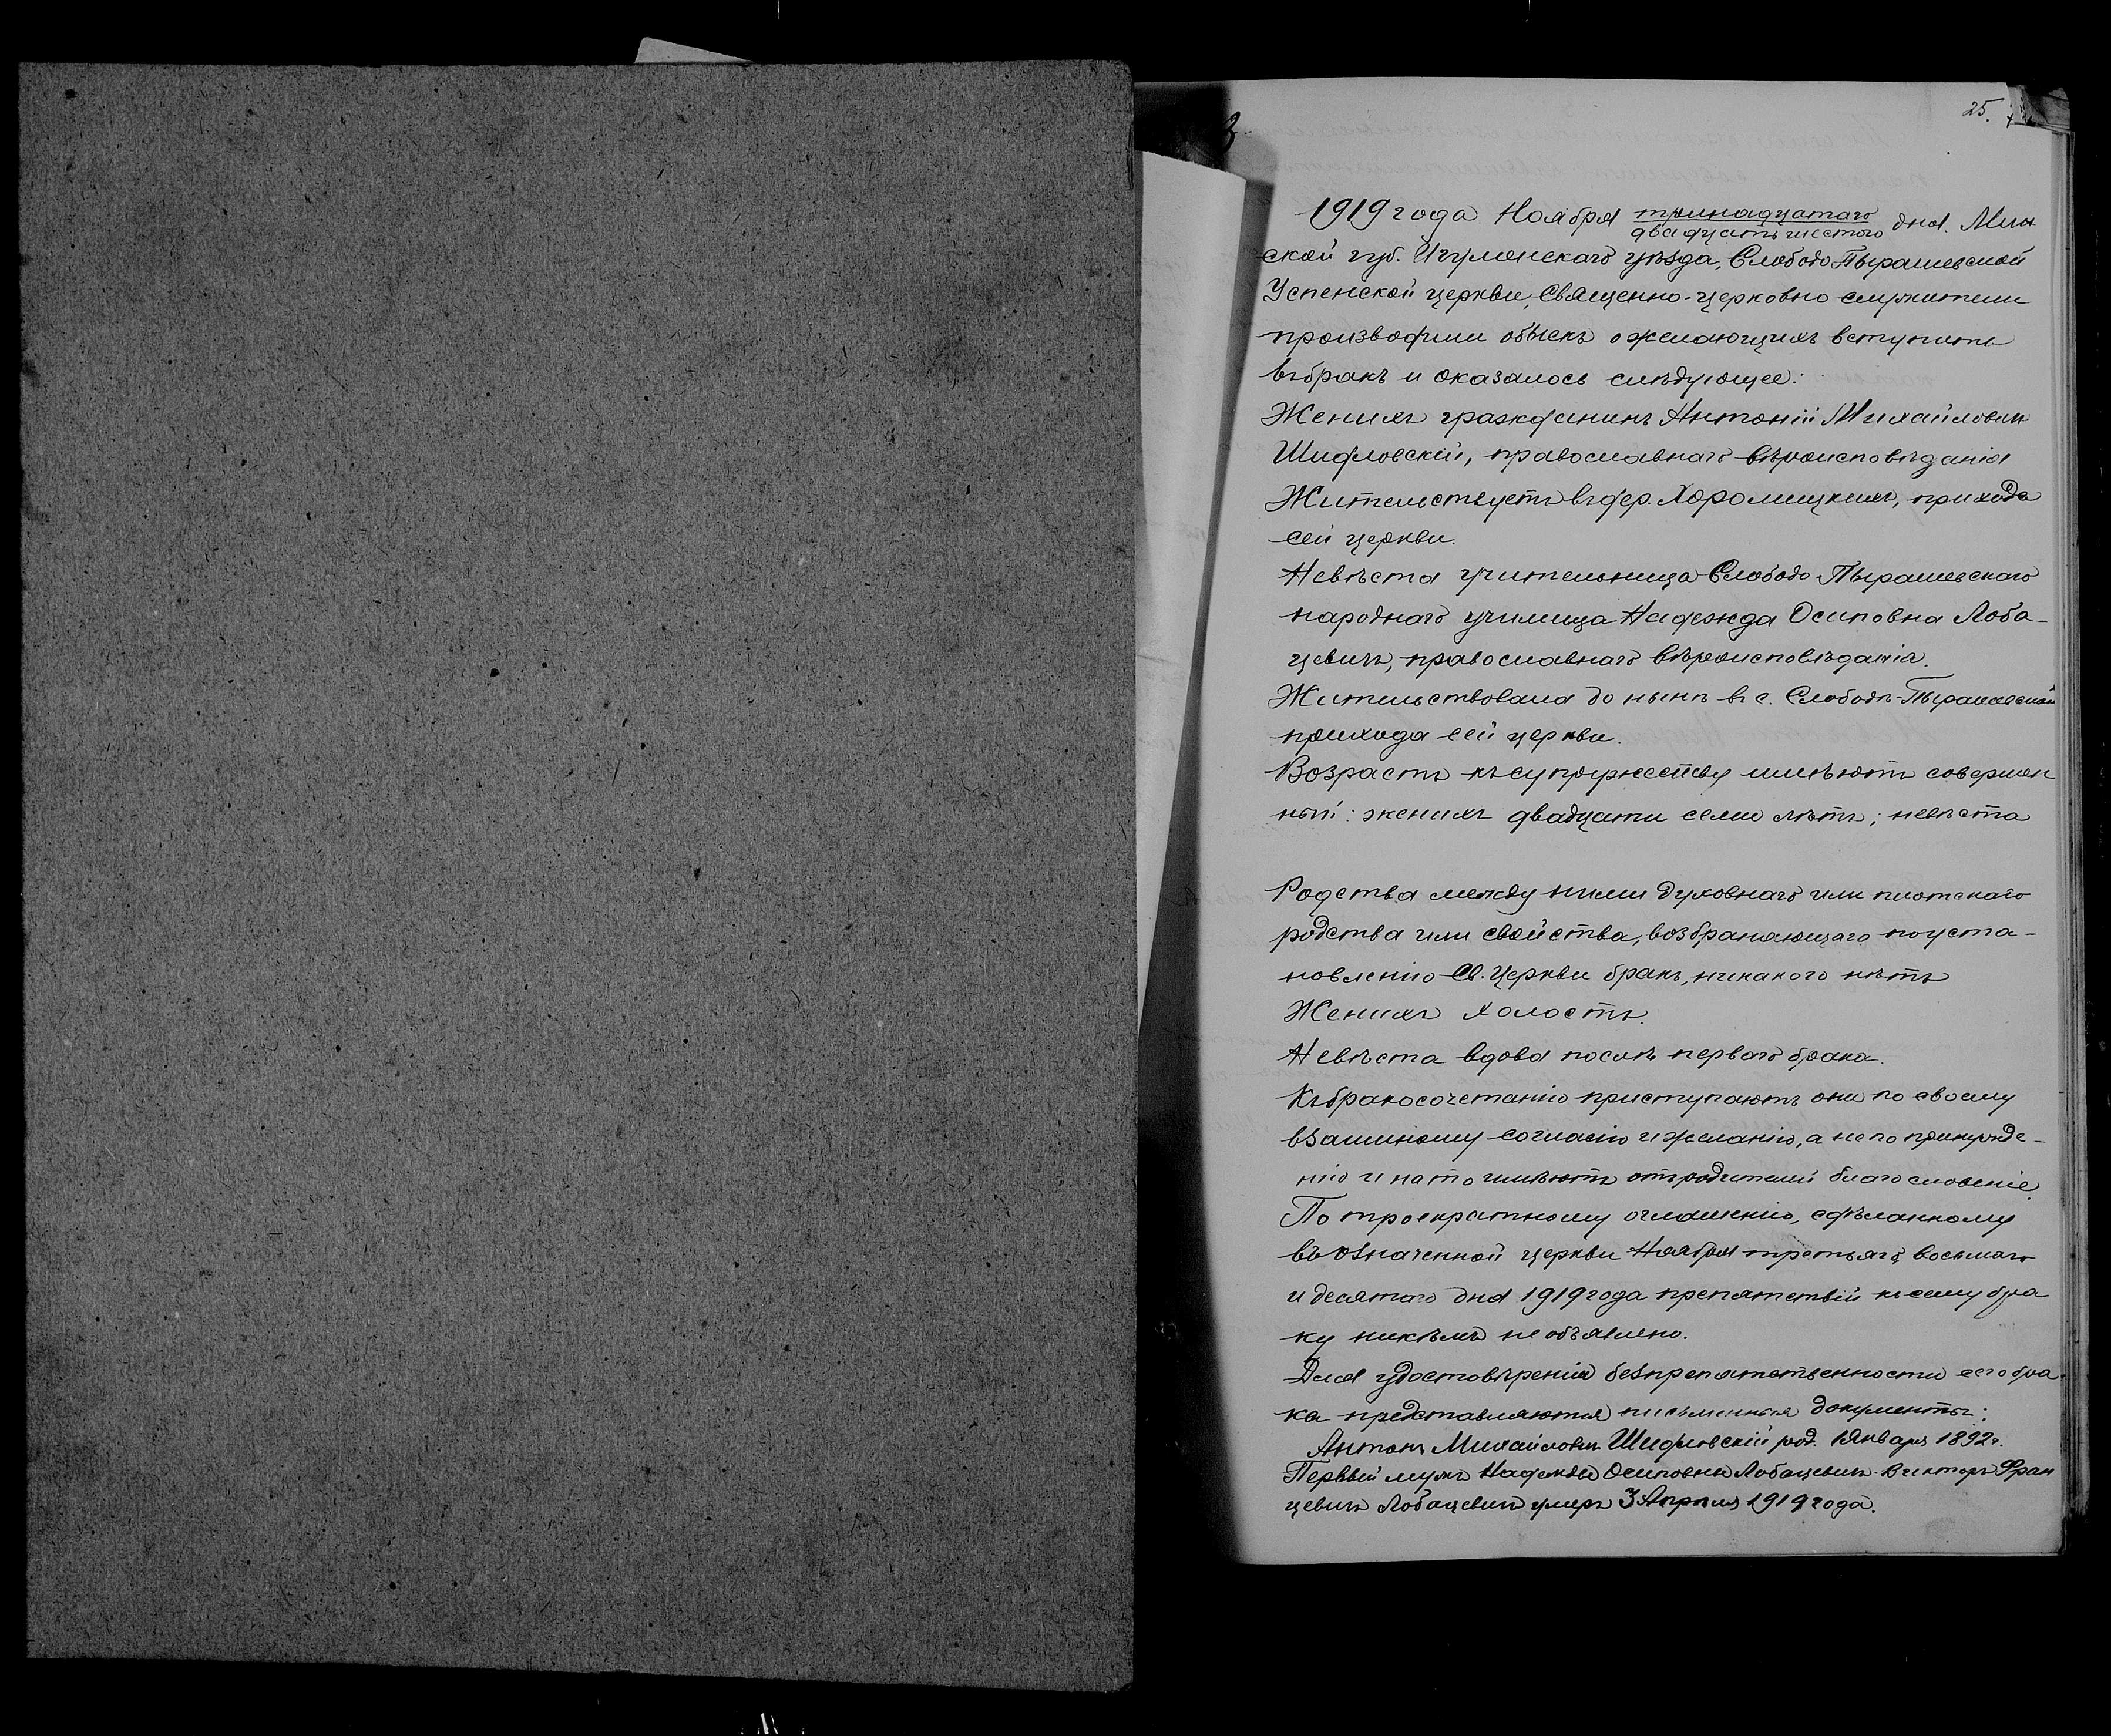 25.
1919 года Ноября тринадцатаго дня. Мин
двадцать шестого
ской губ. Игуменскаго уѣзда, Слободо Пырашевской
Успенской церкви, Священно-церковно служители
производили обыскъ о желающихъ вступить
въ бракъ и оказалось слѣдующее:
Женихъ гражданинъ Антоній Михайловичъ
Шидловскій, православнаго вѣроисповѣданія
Жительствуетъ въ дер. Хоромицкихъ, прихода
сей церкви.
Невѣста учительница Слободо Пырашевскаго
народнаго училища Надежда Осиповна Лоба-
цевичъ, православнаго вѣроисповѣданія.
Жительствовала до нынѣ въ с. Слободѣ-Пырашевской
прихода сей церкви.
Возрастъ къ супружеству имѣютъ совершен
ный: женихъ двадцати семи лѣтъ; невѣста
Родства между ними духовнаго или плотскаго
родства или свойства, возбраняющаго по уста-
новленію Св. Церкви бракъ, никакого нѣтъ
Женихъ холостъ.
Невѣста вдова послѣ перваго брака.
Къ бракосочетанію приступаютъ они по своему
взаимному согласію и желанію, а не по принужде-
нію и на то имѣютъ отъ родителей благословеніе.
По троекратному оглашенію, сдѣланному
въ означенной церкви Ноября третьяго, восьмого
и десятаго дня 1919 года препятствій къ сему бра
ку никѣмъ не объявлено.
Для удостовѣренія безпрепятственности сего бра
ка представляются письменныя документы:
Антонъ Михайловичъ Шидловскій род. 1 Января 1892 г.
Первый мужъ Надежды Осиповны Лобацевичъ Викторъ Фран
цевичъ Лобацевичъ умеръ 3 Апрѣля 1919 года.